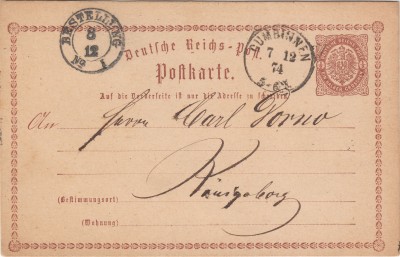 BESTELLUNG
8
12
No 1
GUMBINNEN
7 12
74
5-6N
Deutsche Reichs-Post.
Postkarte.
Auf die Vorderseite ist nur die Adresse zu schreiben.
An Herrn Carl Dorno
Königsberg
(Bestimmungsort)
(Wohnung)